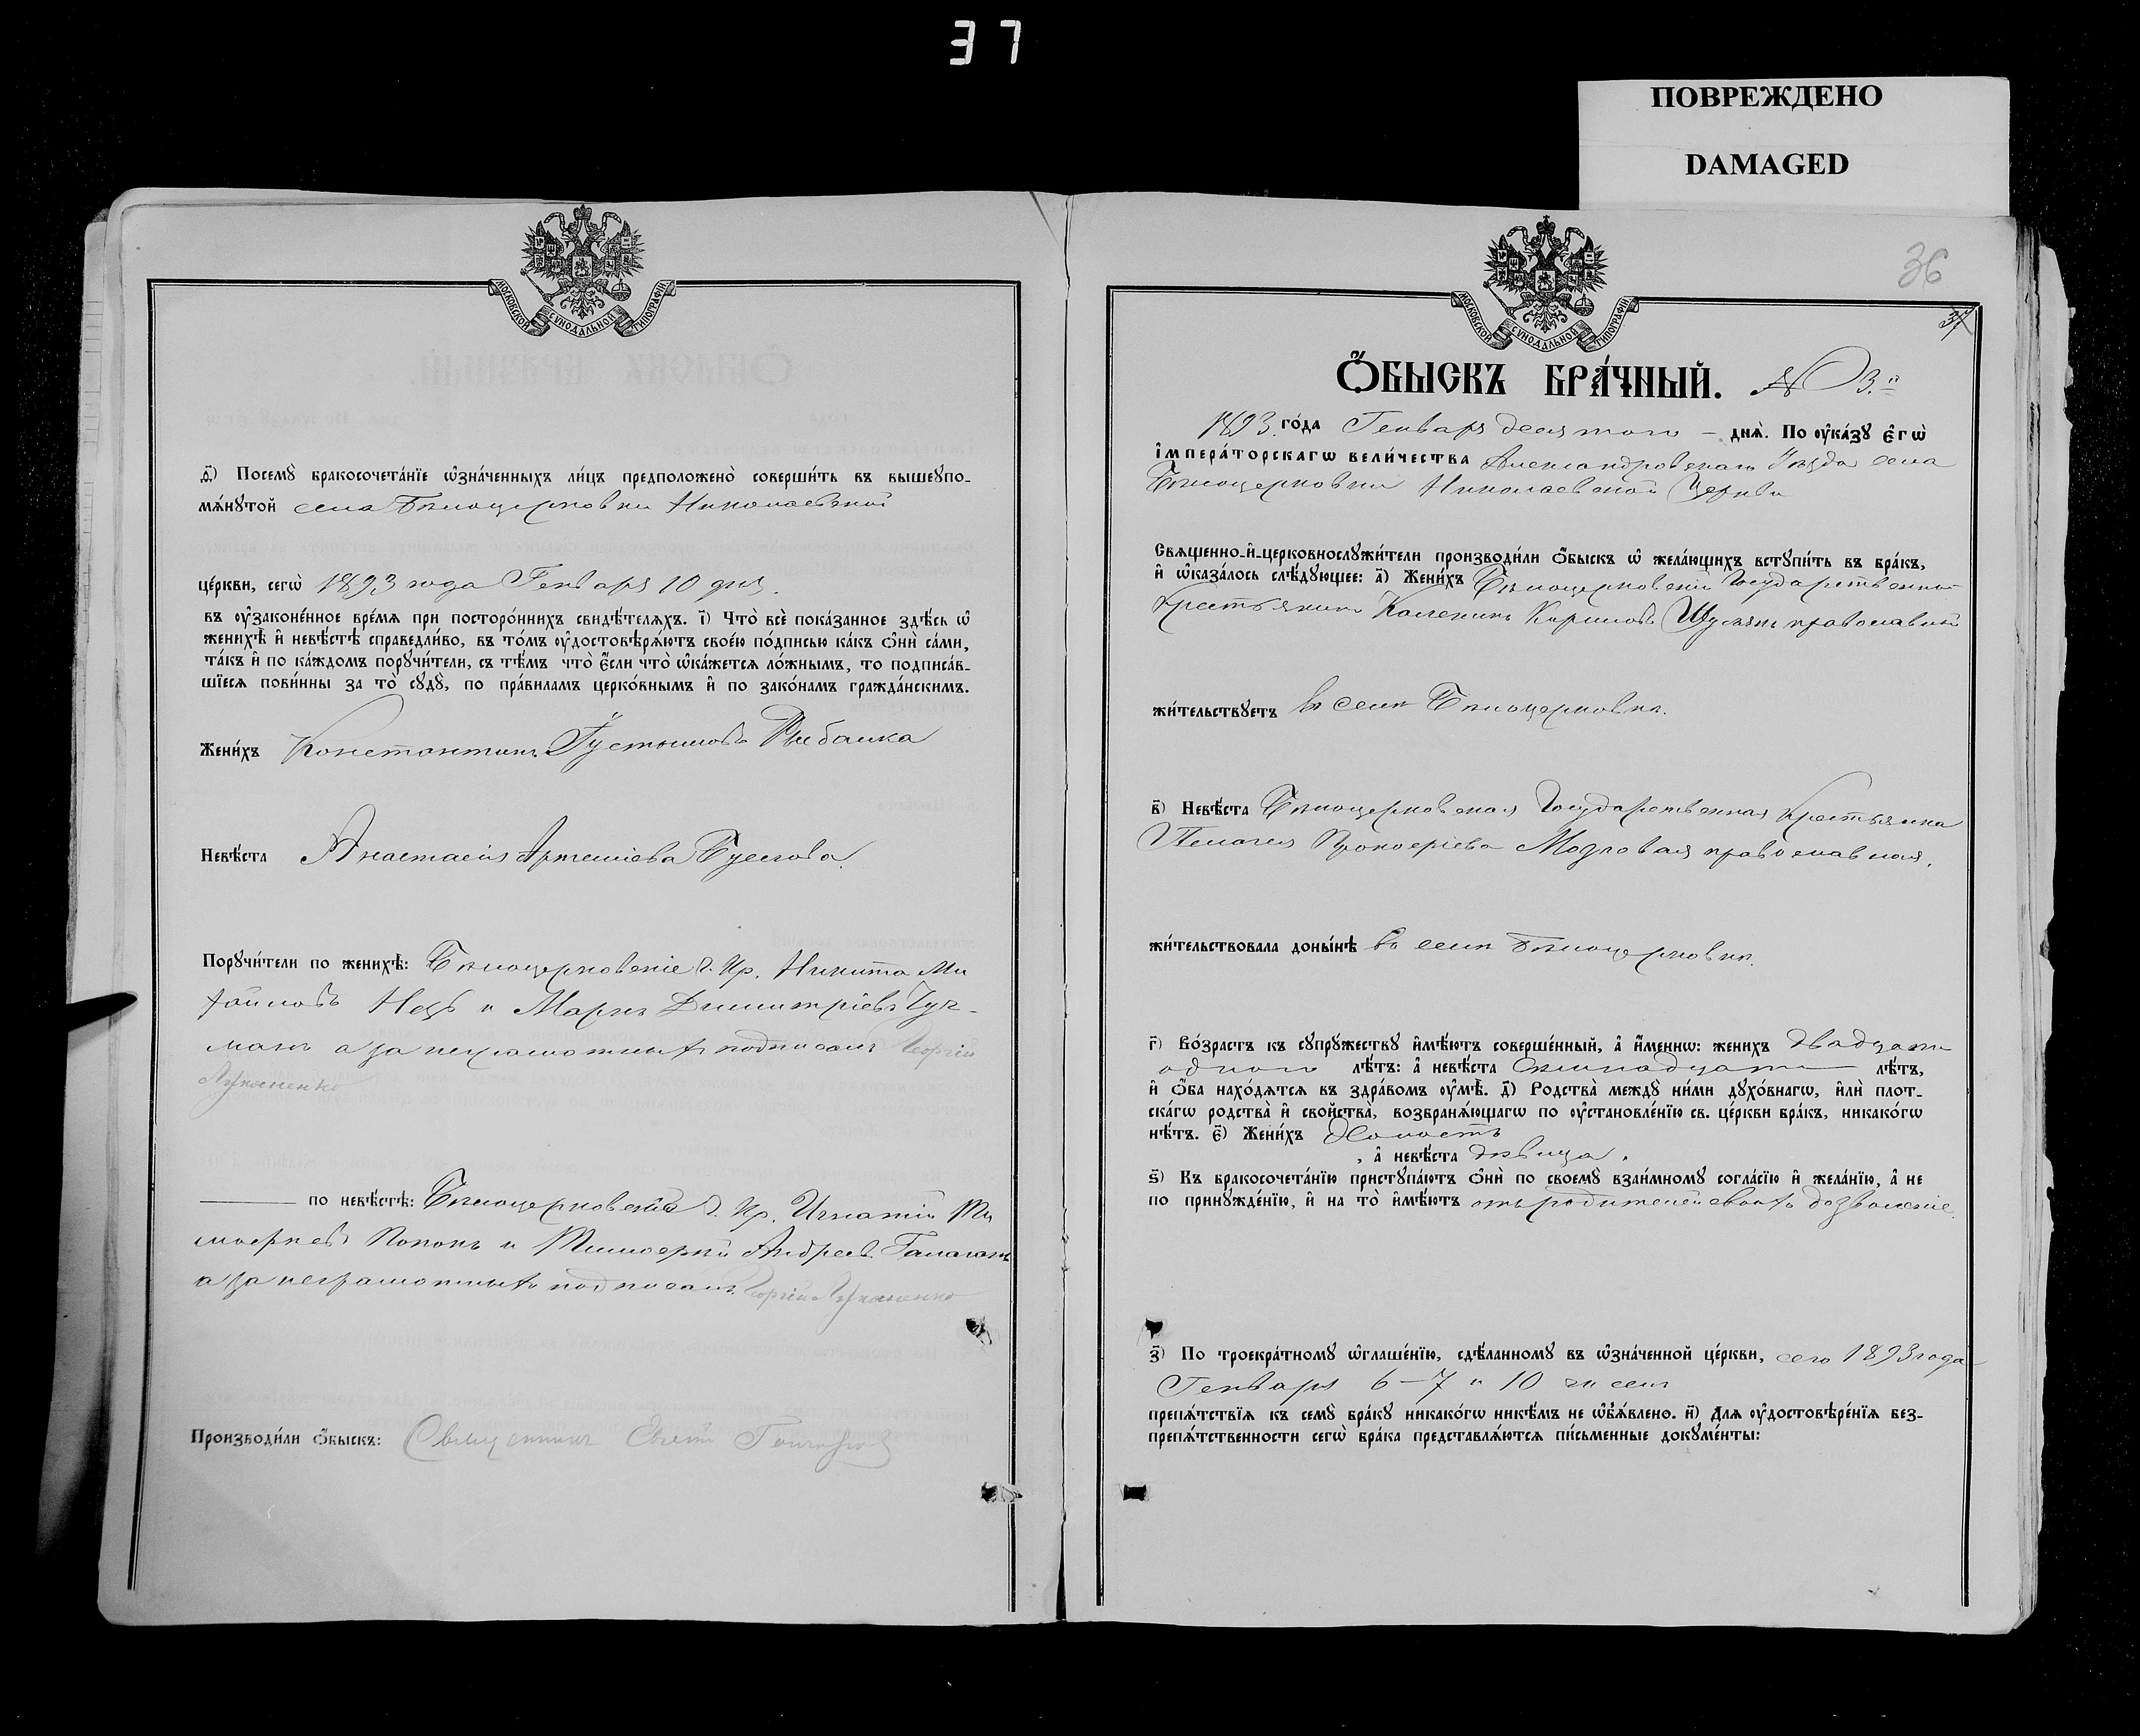 37
ПОВРЕЖДЕНО
DAMAGED
МОСКОВСКОЙ СѴНОДАЛЬНОЙ ТИПОГРАФІИ
ѳ҃) Посемꙋ бракосочета́нїе ѡ҆зна́ченныхъ ли́цъ предположено̀ соверши́ть въ вышеꙋпо-
мѧ́нꙋтой села Бѣлоцерковки Николаевской
це́ркви, сегѡ̀ 1893 года Генваря 10 дня.
въ ᲂу҆законе́нное вре́мѧ при посторо́ннихъ свидѣ́телѧхъ. і҃) Что̀ всѐ пока́занное здѣ́сь ѡ҆
женихѣ̀ и҆ невѣ́стѣ справедли́во, въ то́мъ ᲂу҆достовѣрѧ́ютъ свое́ю по́дписью ка́къ ѻ҆нѝ са́ми,
та́къ и҆ по ка́ждомъ порꙋчи́тели, съ тѣ́мъ что̀ є҆́сли что̀ ѡ҆ка́жетсѧ ло́жнымъ, то подписа́в-
шїесѧ пови́нны за то̀ сꙋдꙋ̀, по пра́виламъ церко́внымъ и҆ по зако́намъ гражда́нскимъ.
Жени́хъ Константинъ Рыбалка
Невѣ́ста Анастасія Артеміева Бусгова
Порꙋчи́тели по женихѣ̀: Бѣлоцерковскіе г. кр. Никита Ми
хайловъ Нець и Маркъ Димитріевъ Гуч-
манъ а за неграмотныхъ подписалъ Георгій
Лукьяненко
по невѣ́стѣ: Бѣлоцерковскіе г. кр. Игнатій Ти
моѳеевъ Попокъ и Тимоѳей Андреев. Галаганъ
а за неграмотныхъ подписалъ Георгій Лукьяненко
Производи́ли ѻ҆́быскъ: Священникъ
36
37
МОСКОВСКОЙ СѴНОДАЛЬНОЙ ТИПОГРАФІИ
Ѻ҆́БЫСКЪ БРА́ЧНЫЙ. № 3.й
1893 го́да Генваря десятаго – днѧ̀. По ᲂу҆ка́зꙋ є҆гѡ̀
і҆мпера́торскагѡ вели́чества Александровскаго Уѣзда села
Бѣлоцерковки Николаевской Церкви
Свѧщенно-и҆-церковнослꙋжи́тели производи́ли ѻ҆́быскъ ѡ҆ жела́ющихъ встꙋпи́ть въ бра́къ,
и҆ ѡ҆каза́лось слѣ́дꙋющее: а҃) Жени́хъ Бѣлоцерковскій Государственный
крестьянинъ Каленикъ Кориловъ Шульга православный
жи́тельствꙋетъ въ селѣ Бѣлоцерковкѣ.
в҃) Невѣ́ста Бѣлоцерковская Государственная Крестьянка
Пелагея Прокофіева Мозговая православная.
жи́тельствовала доны́нѣ въ селѣ Бѣлоцерковкѣ.
г҃) Во́зрастъ къ сꙋпрꙋ́жествꙋ и҆мѣ́ютъ соверше́нный, а҆ и҆́меннѡ: женихъ двадцати
одного лѣ́тъ: а҆ невѣ́ста семнадцати лѣ́тъ,
и҆ ѻ҆́ба нахо́дѧтсѧ въ здра́вомъ ᲂу҆мѣ̀. д҃) Родства̀ междꙋ̀ ни́ми дꙋхо́внагѡ, и҆лѝ плот-
ска́гѡ родства̀ и҆ свойства̀, возбранѧ́ющагѡ по ᲂу҆становле́нїю св. це́ркви бра́къ, никако́гѡ
нѣ́тъ. є҃) Жени́хъ холостъ
, а҆ невѣ́ста дѣвица.
ѕ҃) Къ бракосочета́нїю пристꙋпа́ютъ ѻ҆нѝ по своемꙋ̀ взаи́мномꙋ согла́сїю и҆ жела́нїю, а҆ не
по принꙋжде́нїю, и҆ на то̀ и҆мѣ́ютъ отъ родителей своихъ дозволеніе.
з҃) По троекра́тномꙋ ѡ҆глаше́нїю, сдѣ́ланномꙋ въ ѡ҆зна́ченной це́ркви, сего 1893 года
Генваря 6 – 7 и 10 чиселъ
препѧ́тствїѧ къ семꙋ̀ бра́кꙋ никако́гѡ никѣ́мъ не ѡ҆б̾ѧ́влено. и҃) Длѧ ᲂу҆достовѣре́нїѧ без-
препѧ́тственности сегѡ̀ бра́ка представлѧ́ютсѧ пи́сьменные докꙋме́нты: